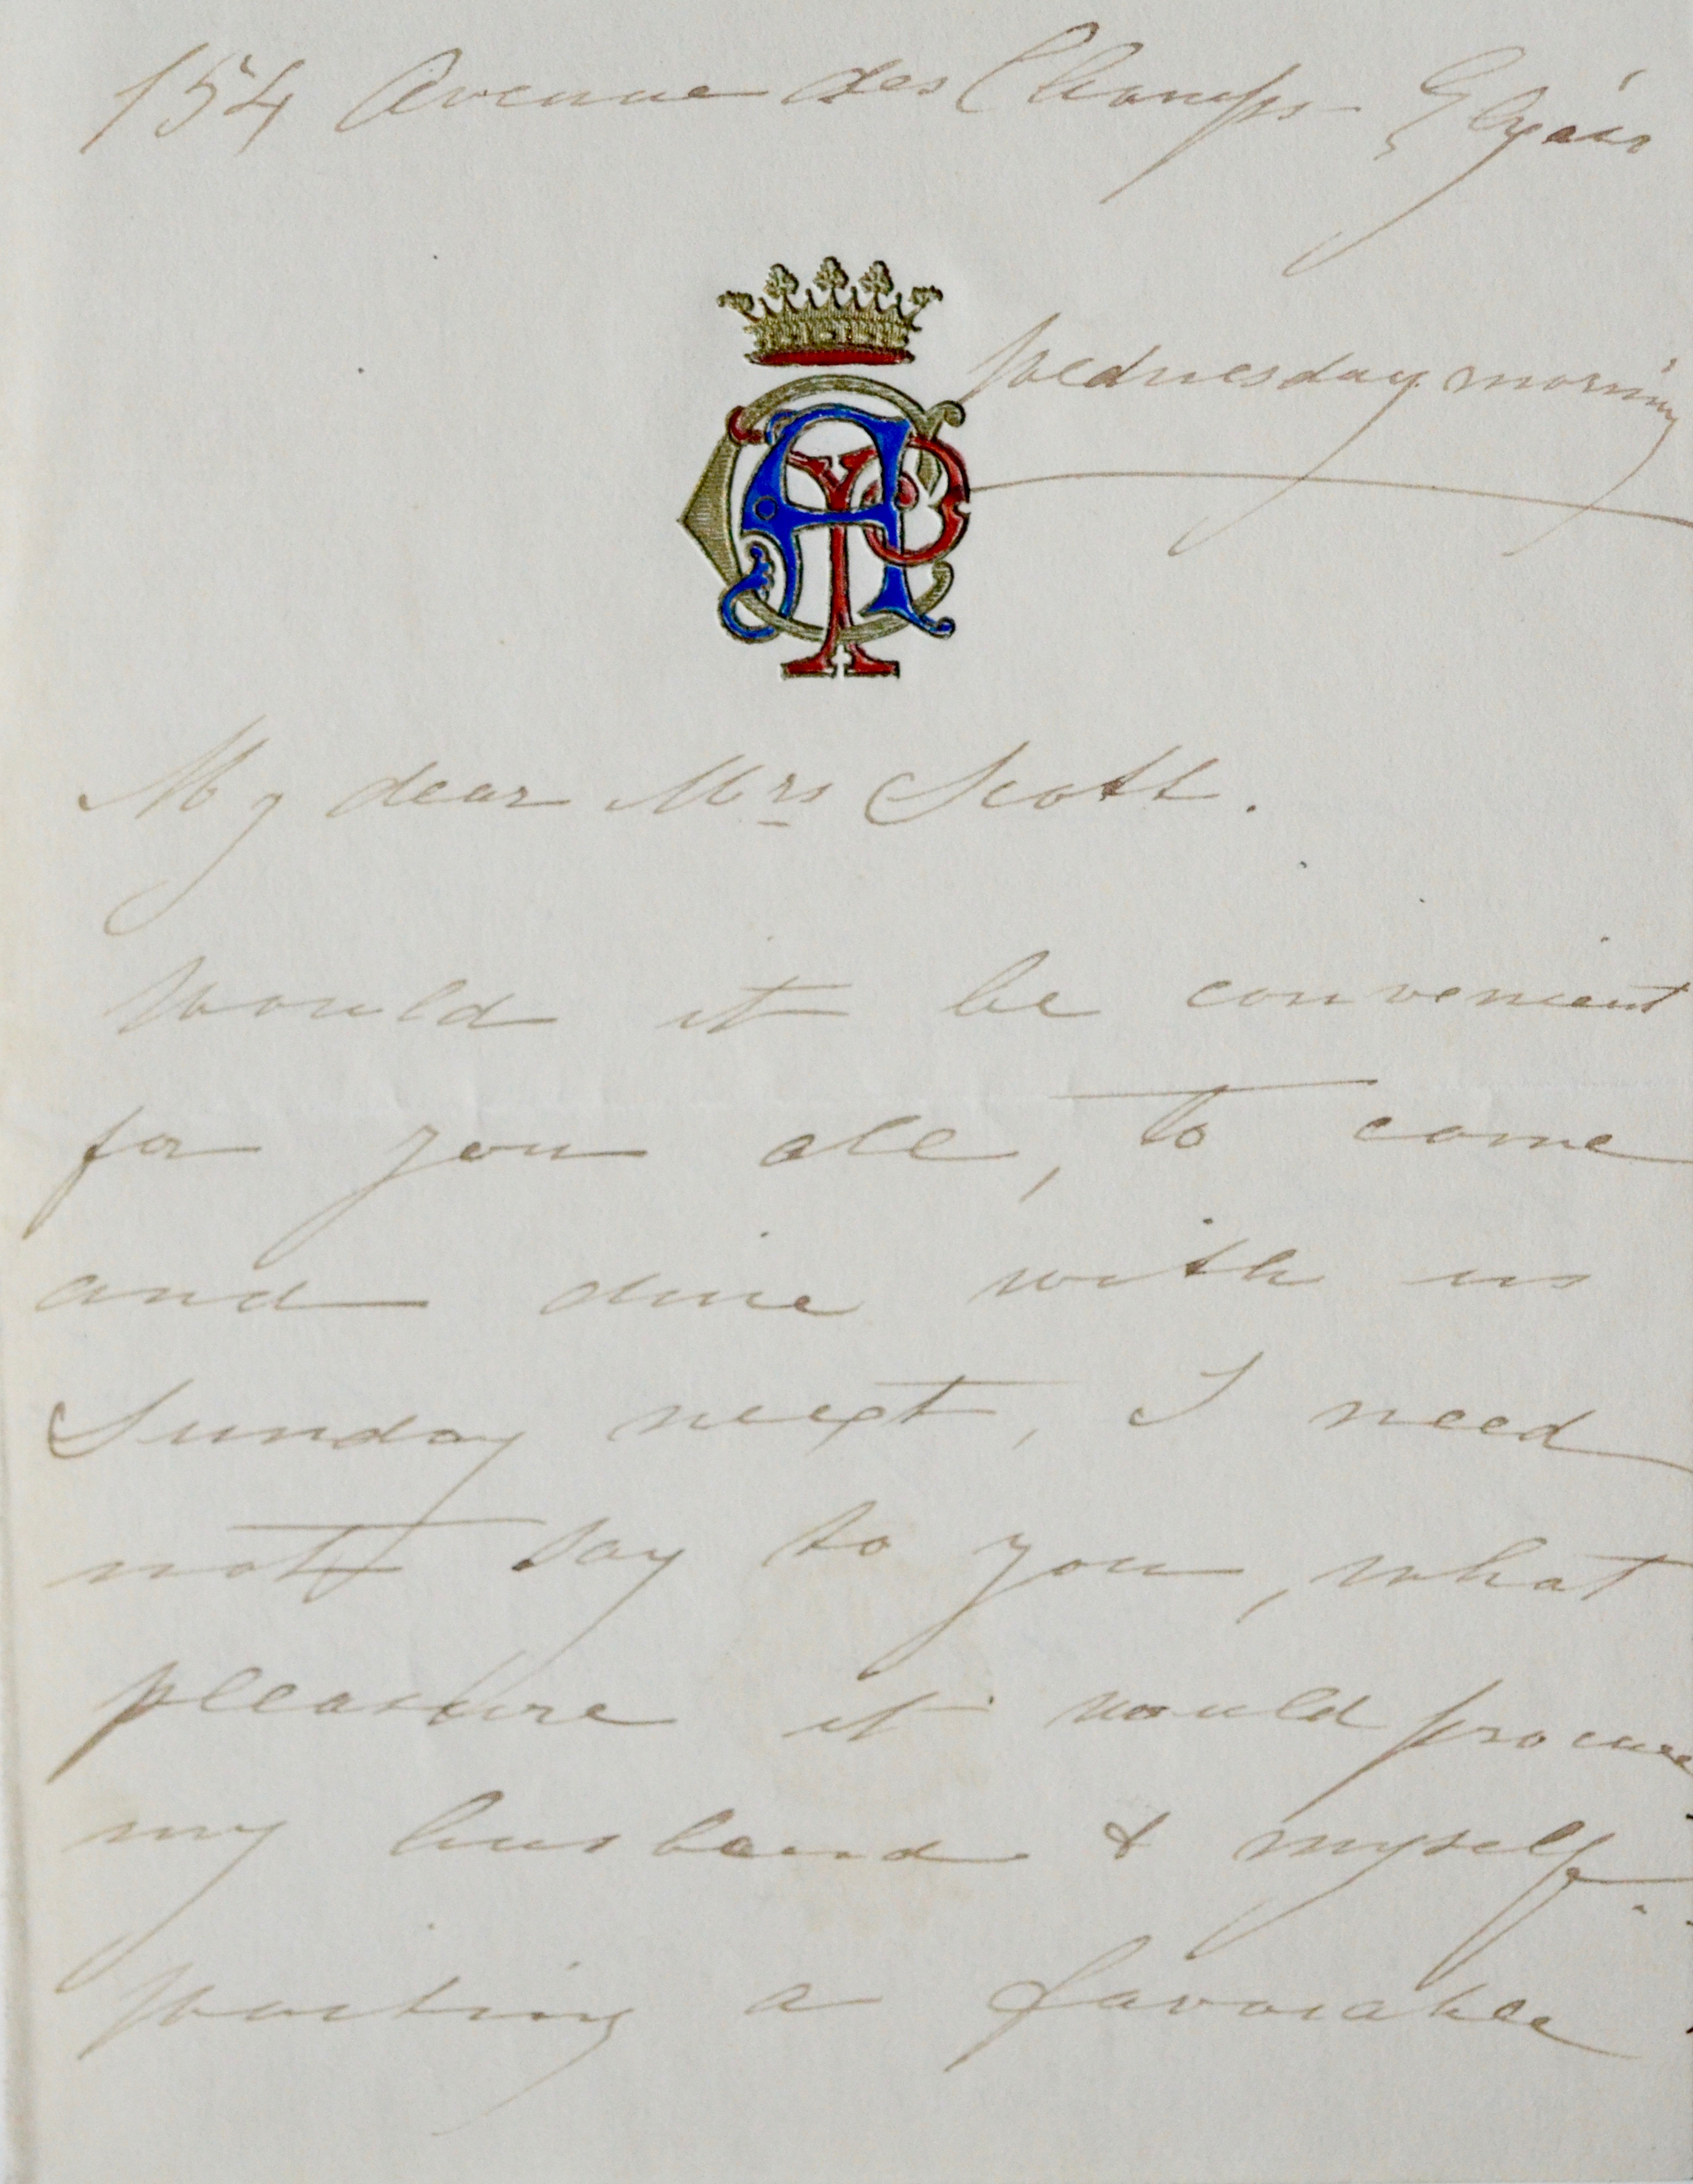 154 Avenue des Champs-Elysées
Wednesday morning
My dear Mrs Scott.
Would it be convenient
for you all, to come
and dine with us
Sunday next, I need
not say to you, what
pleasure it would procure
my husband & myself.
Waiting a favorable